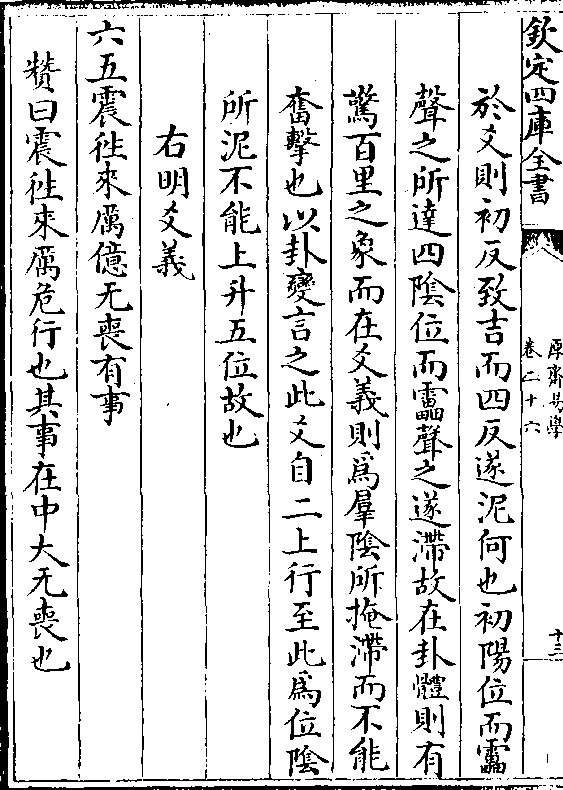 欽定四庫全書
厚齋易學
卷二十六
十三
於爻則初反致吉而四反遂泥何也初陽位而靁
聲之所達四陰位而靁聲之遂滯故在卦體則有
驚百里之象而在爻義則爲羣陰所掩滯而不能
奮擊也以卦變言之此爻自二上行至此爲位陰
所泥不能上升五位故也
右明爻義
六五震徃來厲億无喪有事
贊曰震徃來厲危行也其事在中大无喪也